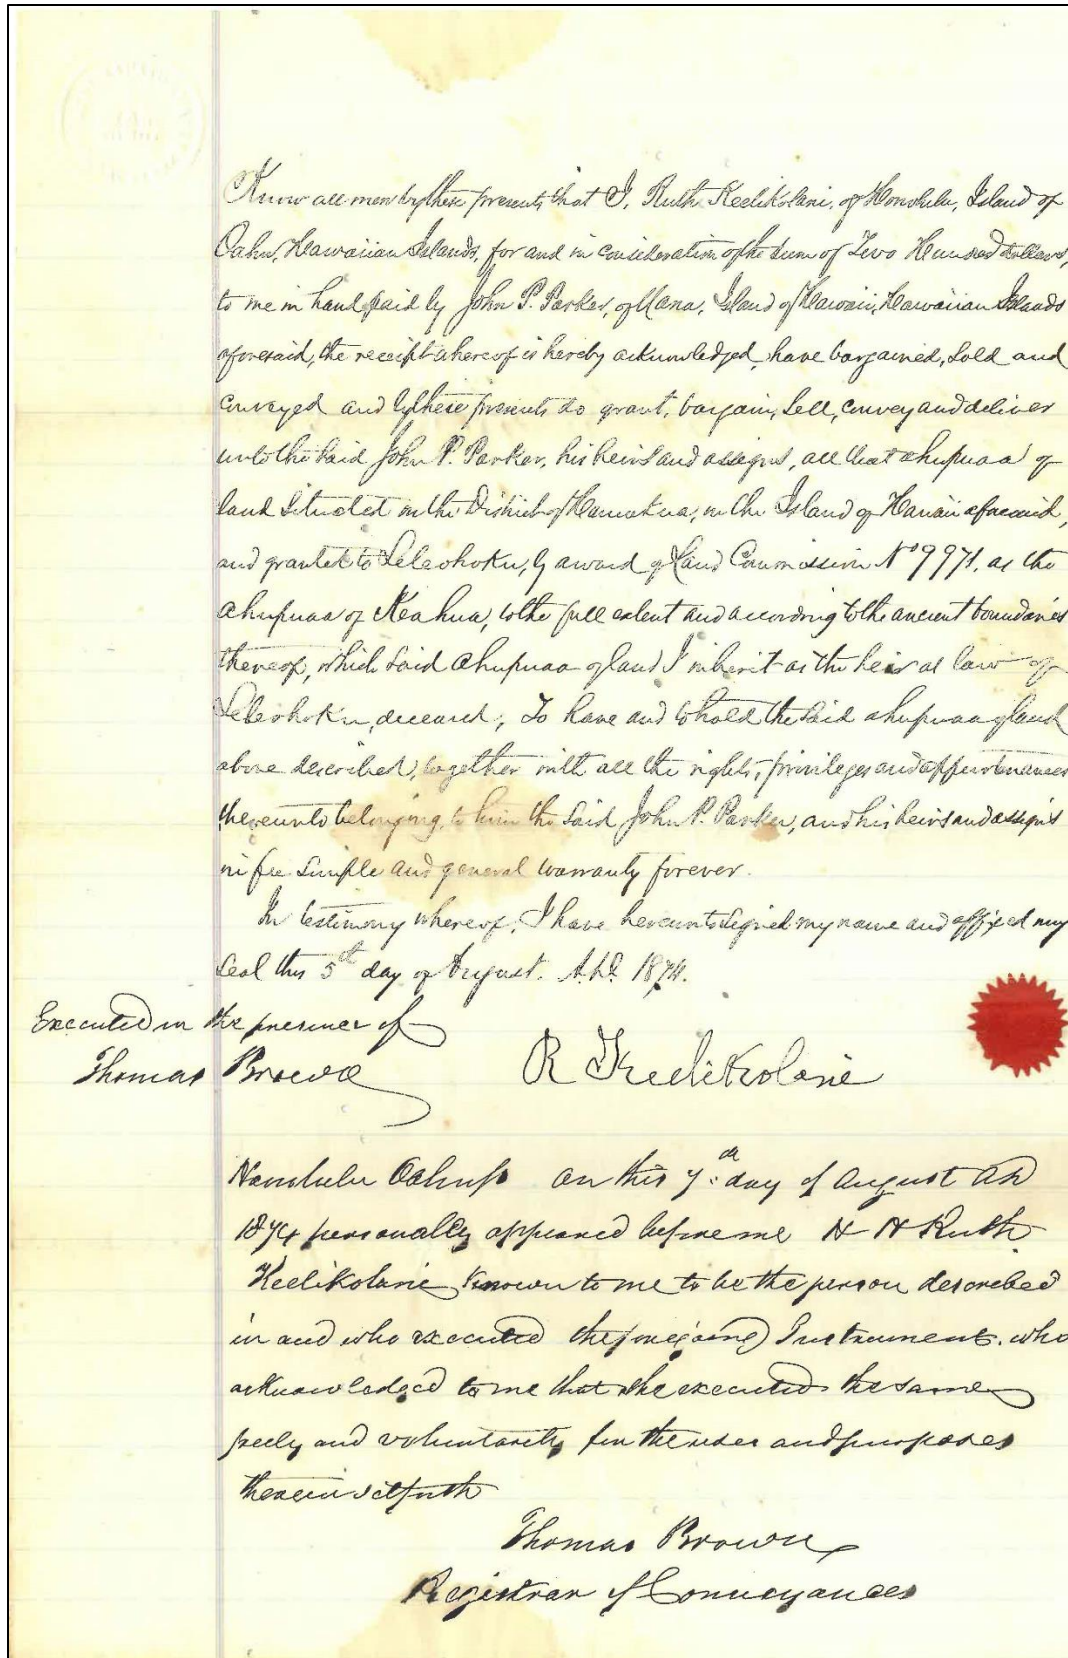 Know all men by these presents that I, Ruth Keelikolani, of Honolulu, Island of
Oahu, Hawaiian Islands, for and in consideration of the sum of Two Hundred dollars,
to me in hand paid by John P. Parker, of Mana, Island of Hawaii, Hawaiian Islands
aforesaid, the receipt whereof is hereby acknowledged, have bargained, sold and
conveyed and by these presents do grant, bargain, sell, convey and deliver
unto the said John P. Parker, his heirs and assigns, all that ahupuaa of
land situated in the District of Hamakua, in the Island of Hawaii aforesaid,
and granted to Leleohoku, by award of Land Commission No 9971, as the
ahupuaa of Keahua, to the full extent and according to the ancient boundaries
thereof, which said ahupuaa of land I inherit as the heir at law of
Leleohoku, deceased; To have and to hold the said ahupuaa of land
above described, together with all the rights, privileges and appurtenances
thereunto belonging, to him the said John P. Parker, and his heirs and assigns
in fee simple and general warranty forever.
In testimony whereof, I have hereunto signed my name and affixed my
seal this 5th day of August. A.D. 1874.
Executed in the presence of
Thomas Brown
R Keelikolani
Honolulu Oahu ss on this 7th day of August AD
1874 personally appeared before me H H Ruth
Keelikolani known to me to be the person described
in and who executed the foregoing Instrument. who
acknowledged to me that she executed the same
freely and voluntarily for the uses and purposes
therein set forth
Thomas Brown
Registrar of Conveyances